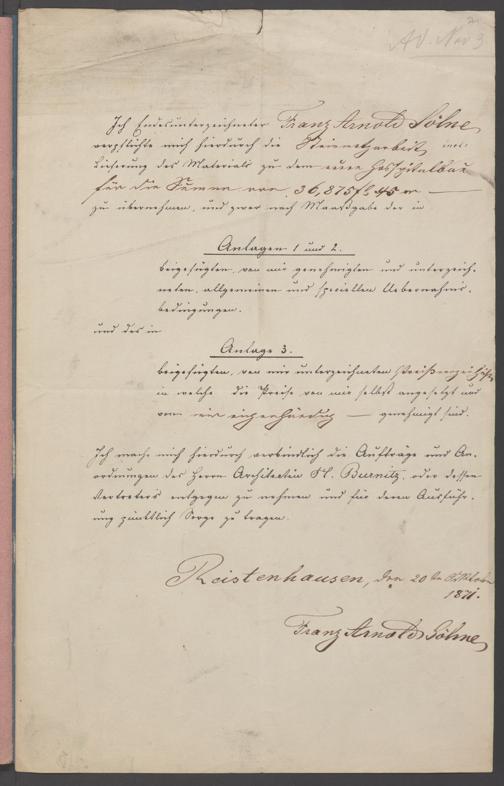 2
AV. Nro 3
Ich Endesunterzeichneter Franz Arnold Söhne
verpflichte mich hierdurch die Steinmetzarbeit incl.
Lieferung des Materials zu dem neuen Hospitalbau
für die Summe von 36,875 fl 45 xr
zu übernehmen, und zwar nach Maaßgabe der in
Anlagen 1 und 2.
beigefügten, von mir genehmigten und unterzeich-
neten, allgemeinen und speciellen Uebernahms-
bedingungen.
und des in
Anlage 3.
beigefügten, von mir unterzeichneten Preisverzeichnisses
in welche die Preise von mir selbst angesetzt und
von mir eigenhändig genehmigt sind.
Ich mache mich hierdurch verbindlich die Aufträge und An-
ordnungen des Herrn Architecten H. Burnitz, oder dessen
Vertreters entgegen zu nehmen und für deren Ausführ-
ung pünktlich Sorge zu tragen.
Reistenhausen, den 20 Oktober
1871.
Franz Arnold Söhne